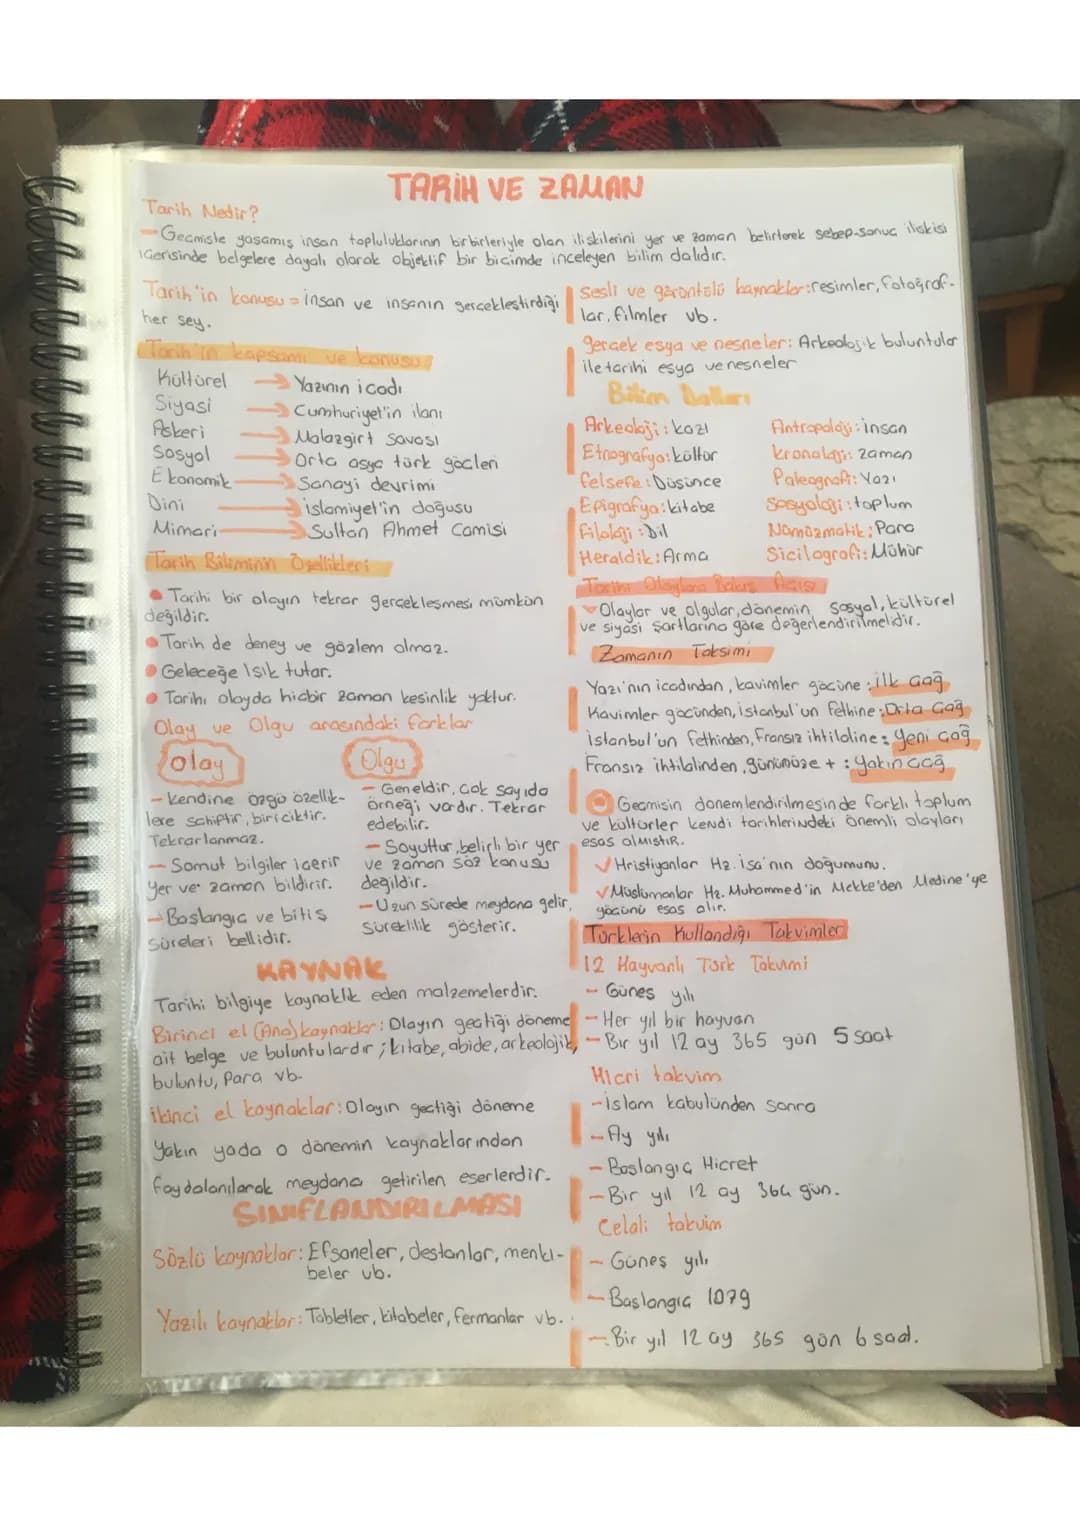 TARİH VE ZAMAN
Tarih Nedir?
- Geçmişte yaşamış insan topluluklarının birbirleriyle olan ilişkilerini yer ve zaman belirterek sebep-sonuç ilişkisi
içerisinde belgelere dayalı olarak objektif bir biçimde inceleyen bilim dalıdır.
Tarih'in konusu = insan ve insanın gerçekleştirdiği
her şey.
Tarih'in kapsamı ve konusu
Kültürel → Yazının icadı
Siyasi → Cumhuriyet'in ilanı
Askeri → Malazgirt Savaşı
Sosyal → Orta asya türk göçleri
Ekonomik → Sanayi devrimi
Dini → islamiyet'in doğuşu
Mimari → Sultan Ahmet Camisi
Tarih Biliminin Özellikleri
• Tarihi bir olayın tekrar gerçekleşmesi mümkün
değildir.
• Tarih de deney ve gözlem olmaz.
• Geleceğe ışık tutar.
• Tarihi olayda hiçbir zaman kesinlik yoktur.
Olay ve Olgu arasındaki farklar
olay
- Kendine özgü özellik-
lere sahiptir, biriciktir.
Tekrarlanmaz.
- Somut bilgiler içerir
Yer ve zaman bildirir.
- Başlangıç ve bitiş
süreleri bellidir.
Olgu
- Geneldir, çok sayıda
örneği vardır. Tekrar
edebilir.
- Soyuttur, belirli bir yer
ve zaman söz konusu
değildir.
- Uzun sürede meydana gelir,
Süreklilik gösterir.
KAYNAK
Tarihi bilgiye kaynaklık eden malzemelerdir.
Birinci el (Ana) kaynaklar: Olayın geçtiği döneme
ait belge ve buluntulardır; kitabe, abide, arkeolojik,
buluntu, Para vb.
ikinci el kaynaklar: Olayın geçtiği döneme
Yakın yada o dönemin kaynaklarından
faydalanılarak meydana getirilen eserlerdir.
SINIFLANDIRILMASI
Sözlü kaynaklar: Efsaneler, destanlar, menkı-
beler vb.
Yazılı kaynaklar: Tabletler, kitabeler, fermanlar vb.
Sesli ve görüntülü kaynaklar: resimler, fotoğraf-
lar, filmler vb.
gerçek eşya ve nesneler: Arkeolojik buluntular
ile tarihi eşya ve nesneler
Bilim Dalları
Arkeoloji: kazı Antropoloji: insan
Etnografya: kültür kronoloji: zaman
felsefe: Düşünce Paleografi: Yazı
Epigrafya: kitabe Sosyoloji: toplum
Filoloji: Dil Nümüzmatik: Para
Heraldik: Arma Sicilografi: Mühür
Tarihi Olaylara Bakış Açısı
Olaylar ve olgular, dönemin Sosyal, kültürel
ve siyasi şartlarına göre değerlendirilmelidir.
Zamanın Taksimi
Yazı'nın icadından, kavimler göçüne: İlk Çağ
Kavimler göçünden, istanbul'un fethine: Orta Çağ
istanbul'un fethinden, Fransız ihtilaline: Yeni çağ
Fransız ihtilalinden, günümüze + : Yakın Çağ
Geçmişin dönemlendirilmesinde farklı toplum
ve kültürler kendi tarihlerindeki önemli olayları
esas almıştır.
✓ Hristiyanlar Hz. İsa'nın doğumunu.
✓ Müslümanlar Hz. Muhammed'in Mekke'den Medine'ye
göçünü esas alır.
Türklerin Kullandığı Takvimler
12 Hayvanlı Türk Takvimi
- Güneş yılı
- Her yıl bir hayvan
- Bir yıl 12 ay 365 gün 5 saat
Hicri takvim
- islam kabulünden sonra
- Ay yılı
- Başlangıç Hicret
- Bir yıl 12 ay 364 gün.
Celali takvim
- Güneş yılı
- Başlangıç 1079
- Bir yıl 12 ay 365 gün 6 saat.